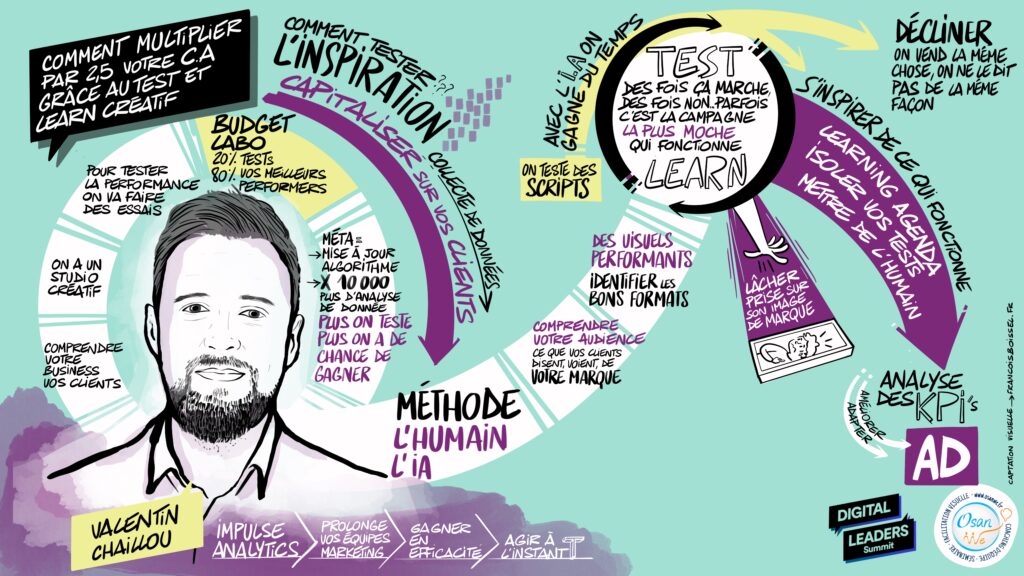 COMMENT MULTIPLIER
PAR 2,5 VOTRE C.A
GRÂCE AU TEST ET
LEARN CRÉATIF
POUR TESTER
LA PERFORMANCE
ON VA FAIRE
DES ESSAIS
ON A UN
STUDIO
CRÉATIF
COMPRENDRE
VOTRE
BUSINESS
VOS CLIENTS
BUDGET
LABO
20% TESTS
80% VOS MEILLEURS
PERFORMERS
MÉTA =
→ MISE À JOUR
ALGORITHME
→ X 10 000
PLUS D'ANALYSE
DE DONNÉE
PLUS ON TESTE
PLUS ON A DE
CHANCE DE
GAGNER
COMMENT TESTER ???
L'INSPIRATION
CAPITALISER SUR VOS CLIENTS
COLLECTE DE DONNÉES
MÉTHODE
L'HUMAIN
L'iA
COMPRENDRE
VOTRE AUDIENCE
CE QUE VOS CLIENTS
DISENT, VOIENT, DE
VOTRE MARQUE
DES VISUELS
PERFORMANTS
IDENTIFIER LES
BONS FORMATS
ON TESTE DES
SCRIPTS
AVEC L'iA ON
GAGNE DU TEMPS
TEST
DES FOIS ÇA MARCHE,
DES FOIS NON.. PARFOIS
C'EST LA CAMPAGNE
LA PLUS MOCHE
QUI FONCTIONNE
LEARN
LÂCHER
PRISE SUR
SON IMAGE
DE MARQUE
DÉCLINER
ON VEND LA MÊME
CHOSE, ON NE LE DIT
PAS DE LA MÊME
FAÇON
S'INSPIRER DE CE QUI FONCTIONNE
LEARNING AGENDA
ISOLER VOS TESTS
METTRE DE L'HUMAIN
ANALYSE
DES KPi's
AMÉLIORER
ADAPTER
AD
VALENTIN
CHAILLOU
IMPULSE
ANALYTICS
PROLONGE
VOS ÉQUIPES
MARKETING
GAGNER
EN
EFFICACITÉ
AGIR À
L'INSTANT T
DIGITAL
LEADERS
Summit
FACILITATION VISUELLE - www.osanwe.fr - COACHING D'ÉQUIPE - SÉMINAIRE
Osan
WE
CAPTATION VISUELLE → FRANCOISBOISSEL.FR